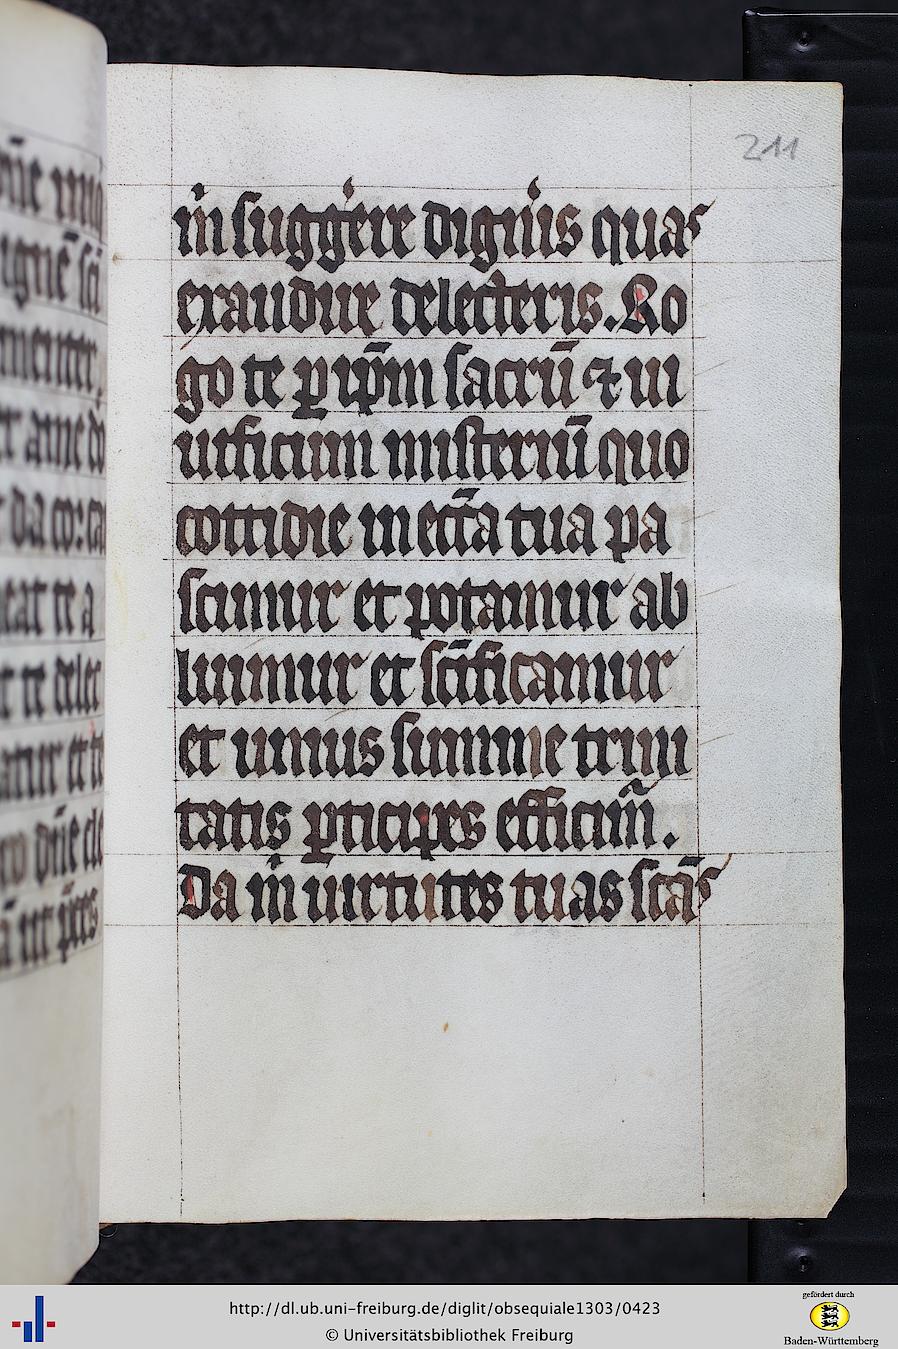 211
m̄ suggere digneris quas
exaudire delecteris. Ro
go te ꝑ ip̄m sacrū ⁊ ui
uificum misteriū quo
cottidie in eccl̄a tua pa
scimur et potamur ab
luimur et scīficamur
et unius summe trini
tatis ꝑticipes efficim̄.
Da m̄ uirtutes tuas scās
http://dl.ub.uni-freiburg.de/diglit/obsequiale1303/0423
© Universitätsbibliothek Freiburg
gefördert durch
Baden-Württemberg